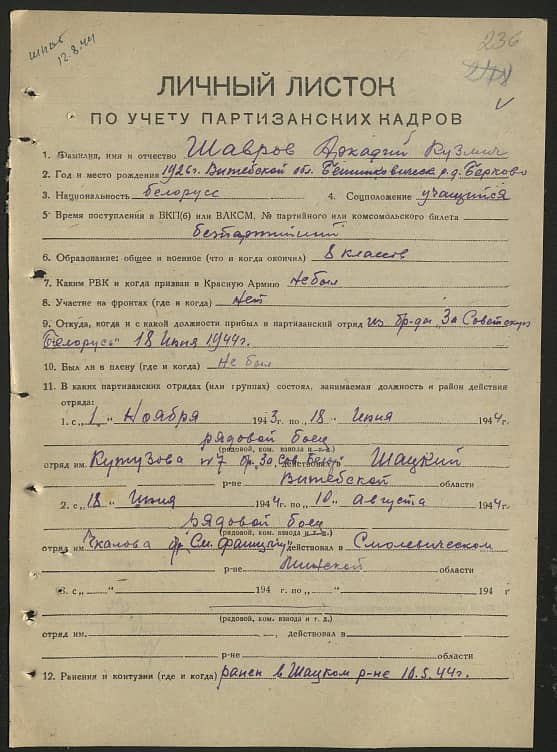 штаб
12.8.44
236
ЛИЧНЫЙ ЛИСТОК
ПО УЧЕТУ ПАРТИЗАНСКИХ КАДРОВ
1. Фамилия, имя и отчество Шавров Аркадий Кузмич
2. Год и место рождения 1926г. Витебской обл. р.д. Берково
3. Национальность белорусс 4. Соцположение учащийся
5 Время поступления в ВКП(б) или ВЛКСМ, № партийного или комсомольского билета
безпартийный
6. Образование: общее и военное (что и когда окончил) 8 классов
7. Каким РВК и когда призван в Красную Армию не был
8. Участие на фронтах (где и когда) нет
9. Откуда, когда и с какой должности прибыл в партизанский отряд из бр-ды „За Советскую
Белорусь" 18 июня 1944г.
10. Был ли в плену (где и когда) не был
11. В каких партизанских отрядах (или группах) состоял, занимаемая должность и район действия
отряда:
1. с „1" Ноября 1943 г. по „18" июня 1944г.
рядовой боец
(рядовой, ком. взвода и т. д.)
отряд им. Кутузова №7 бр. „За Сов. действовал в Шацкий
р-не Витебской области
2. с „18" июня 1944 г. по „10" августа 1944г.
рядовой боец
(рядовой, ком. взвода и т. д.)
отряд им Чкалова бр. действовал в Смолевическом
р-не Минской области
3. с „ " 194 г. по „ " 194 г
(рядовой, ком. взвода и т. д.)
отряд им. , действовал в
р-не области
12. Ранения и контузии (где и когда) ранен в Шацком р-не 10.5.44г.